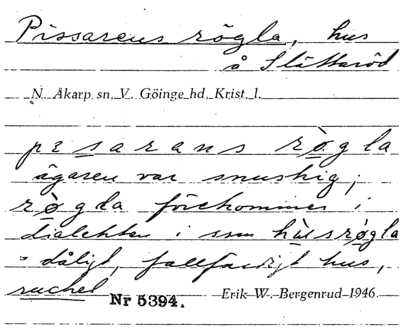 Pissarens rögla, hus
å Slättaröd
N. Åkarp sn, V. Göinge hd, Krist. l.
pesarans rògla
ägaren var snuskig;
rògla förekommer i
dialekten i som hùsrògla
= dåligt, fallfärdigt hus,
ruckel
Nr 5394. Erik W. Bergenrud 1946.